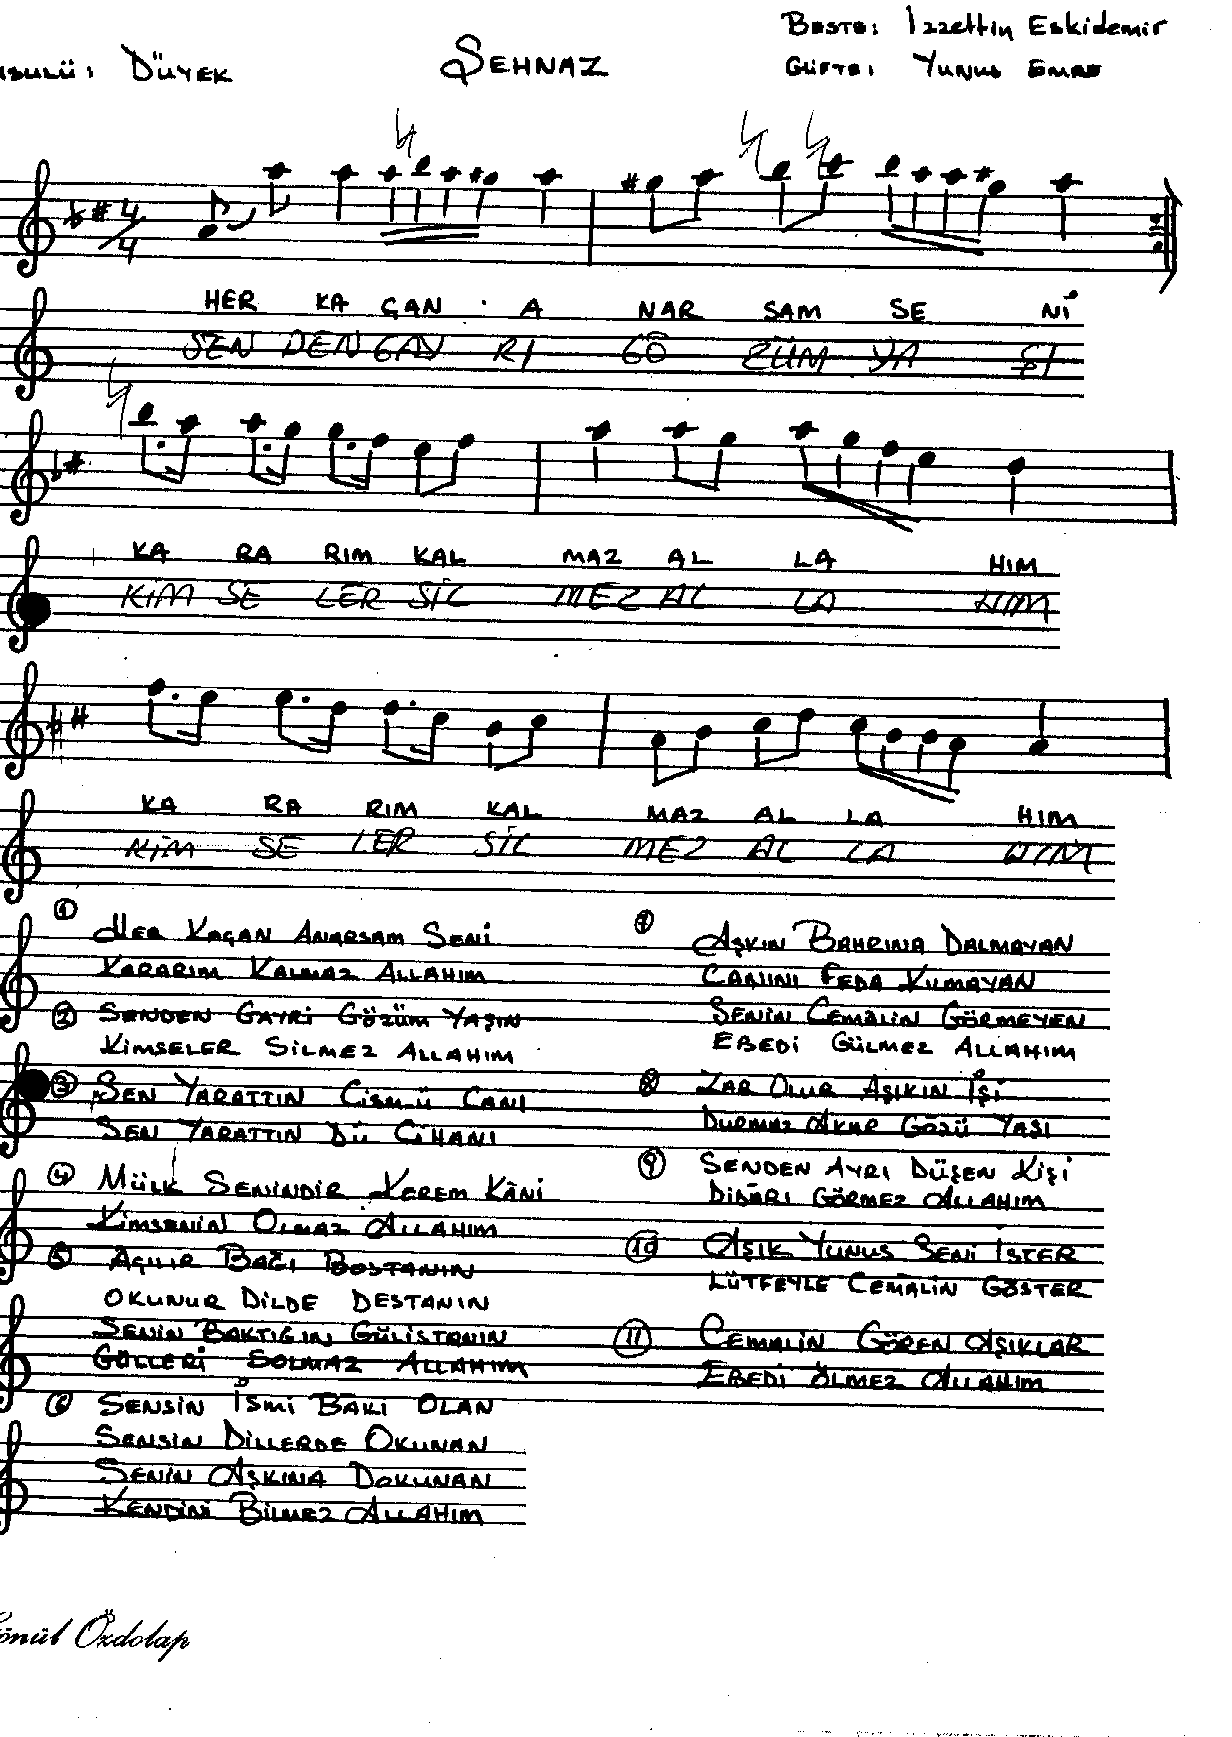 Beste: İzzettin Eskidemir
usulü: Düyek Şehnaz Güfte: Yunus Emre
4/4
HER KA ÇAN A NAR SAM SE Nİ
SEN DEN GAY RI GÖ ZÜM YA ŞI
KA RA RIM KAL MAZ AL LA HIM
KİM SE LER SİL MEZ AL LA HIM
KA RA RIM KAL MAZ AL LA HIM
KİM SE LER SİL MEZ AL LA HIM
1 Her Kaçan Anarsam Seni
Kararım Kalmaz Allahım
2 Senden Gayri Gözüm Yaşın
Kimseler Silmez Allahım
3 Sen Yarattın Cism ü Canı
Sen Yarattın Dü Cihanı
4 Mülk Senindir Kerem Kâni
Kimsenin Olmaz Allahım
5 Açılır Bağı Bostanın
Okunur Dilde Destanın
Senin Baktığın Gülistanın
Gülleri Solmaz Allahım
6 Sensin İsmi Bâki Olan
Sensin Dillerde Okunan
Senin Aşkına Dokunan
Kendini Bilmez Allahım
7 Aşkın Bahrına Dalmayan
Canını Feda Kılmayan
Senin Cemâlin Görmeyen
Ebedi Gülmez Allahım
8 Zar Olur Aşıkın İşi
Durmaz Akar Gözü Yaşı
9 Senden Ayrı Düşen Kişi
Didârı Görmez Allahım
10 Aşık Yunus Seni İster
Lütfeyle Cemâlin Göster
11 Cemâlin Gören Aşıklar
Ebedi Ölmez Allahım
Gönül Özdolap